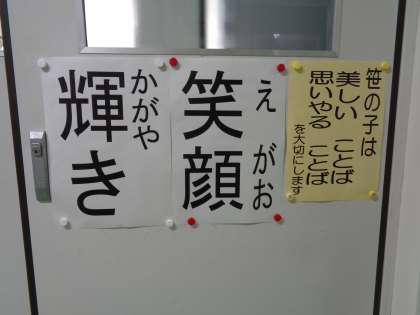 笹の子は
美しい ことば
思いやる ことば
を大切にします
えがお
笑顔
かがや
輝き